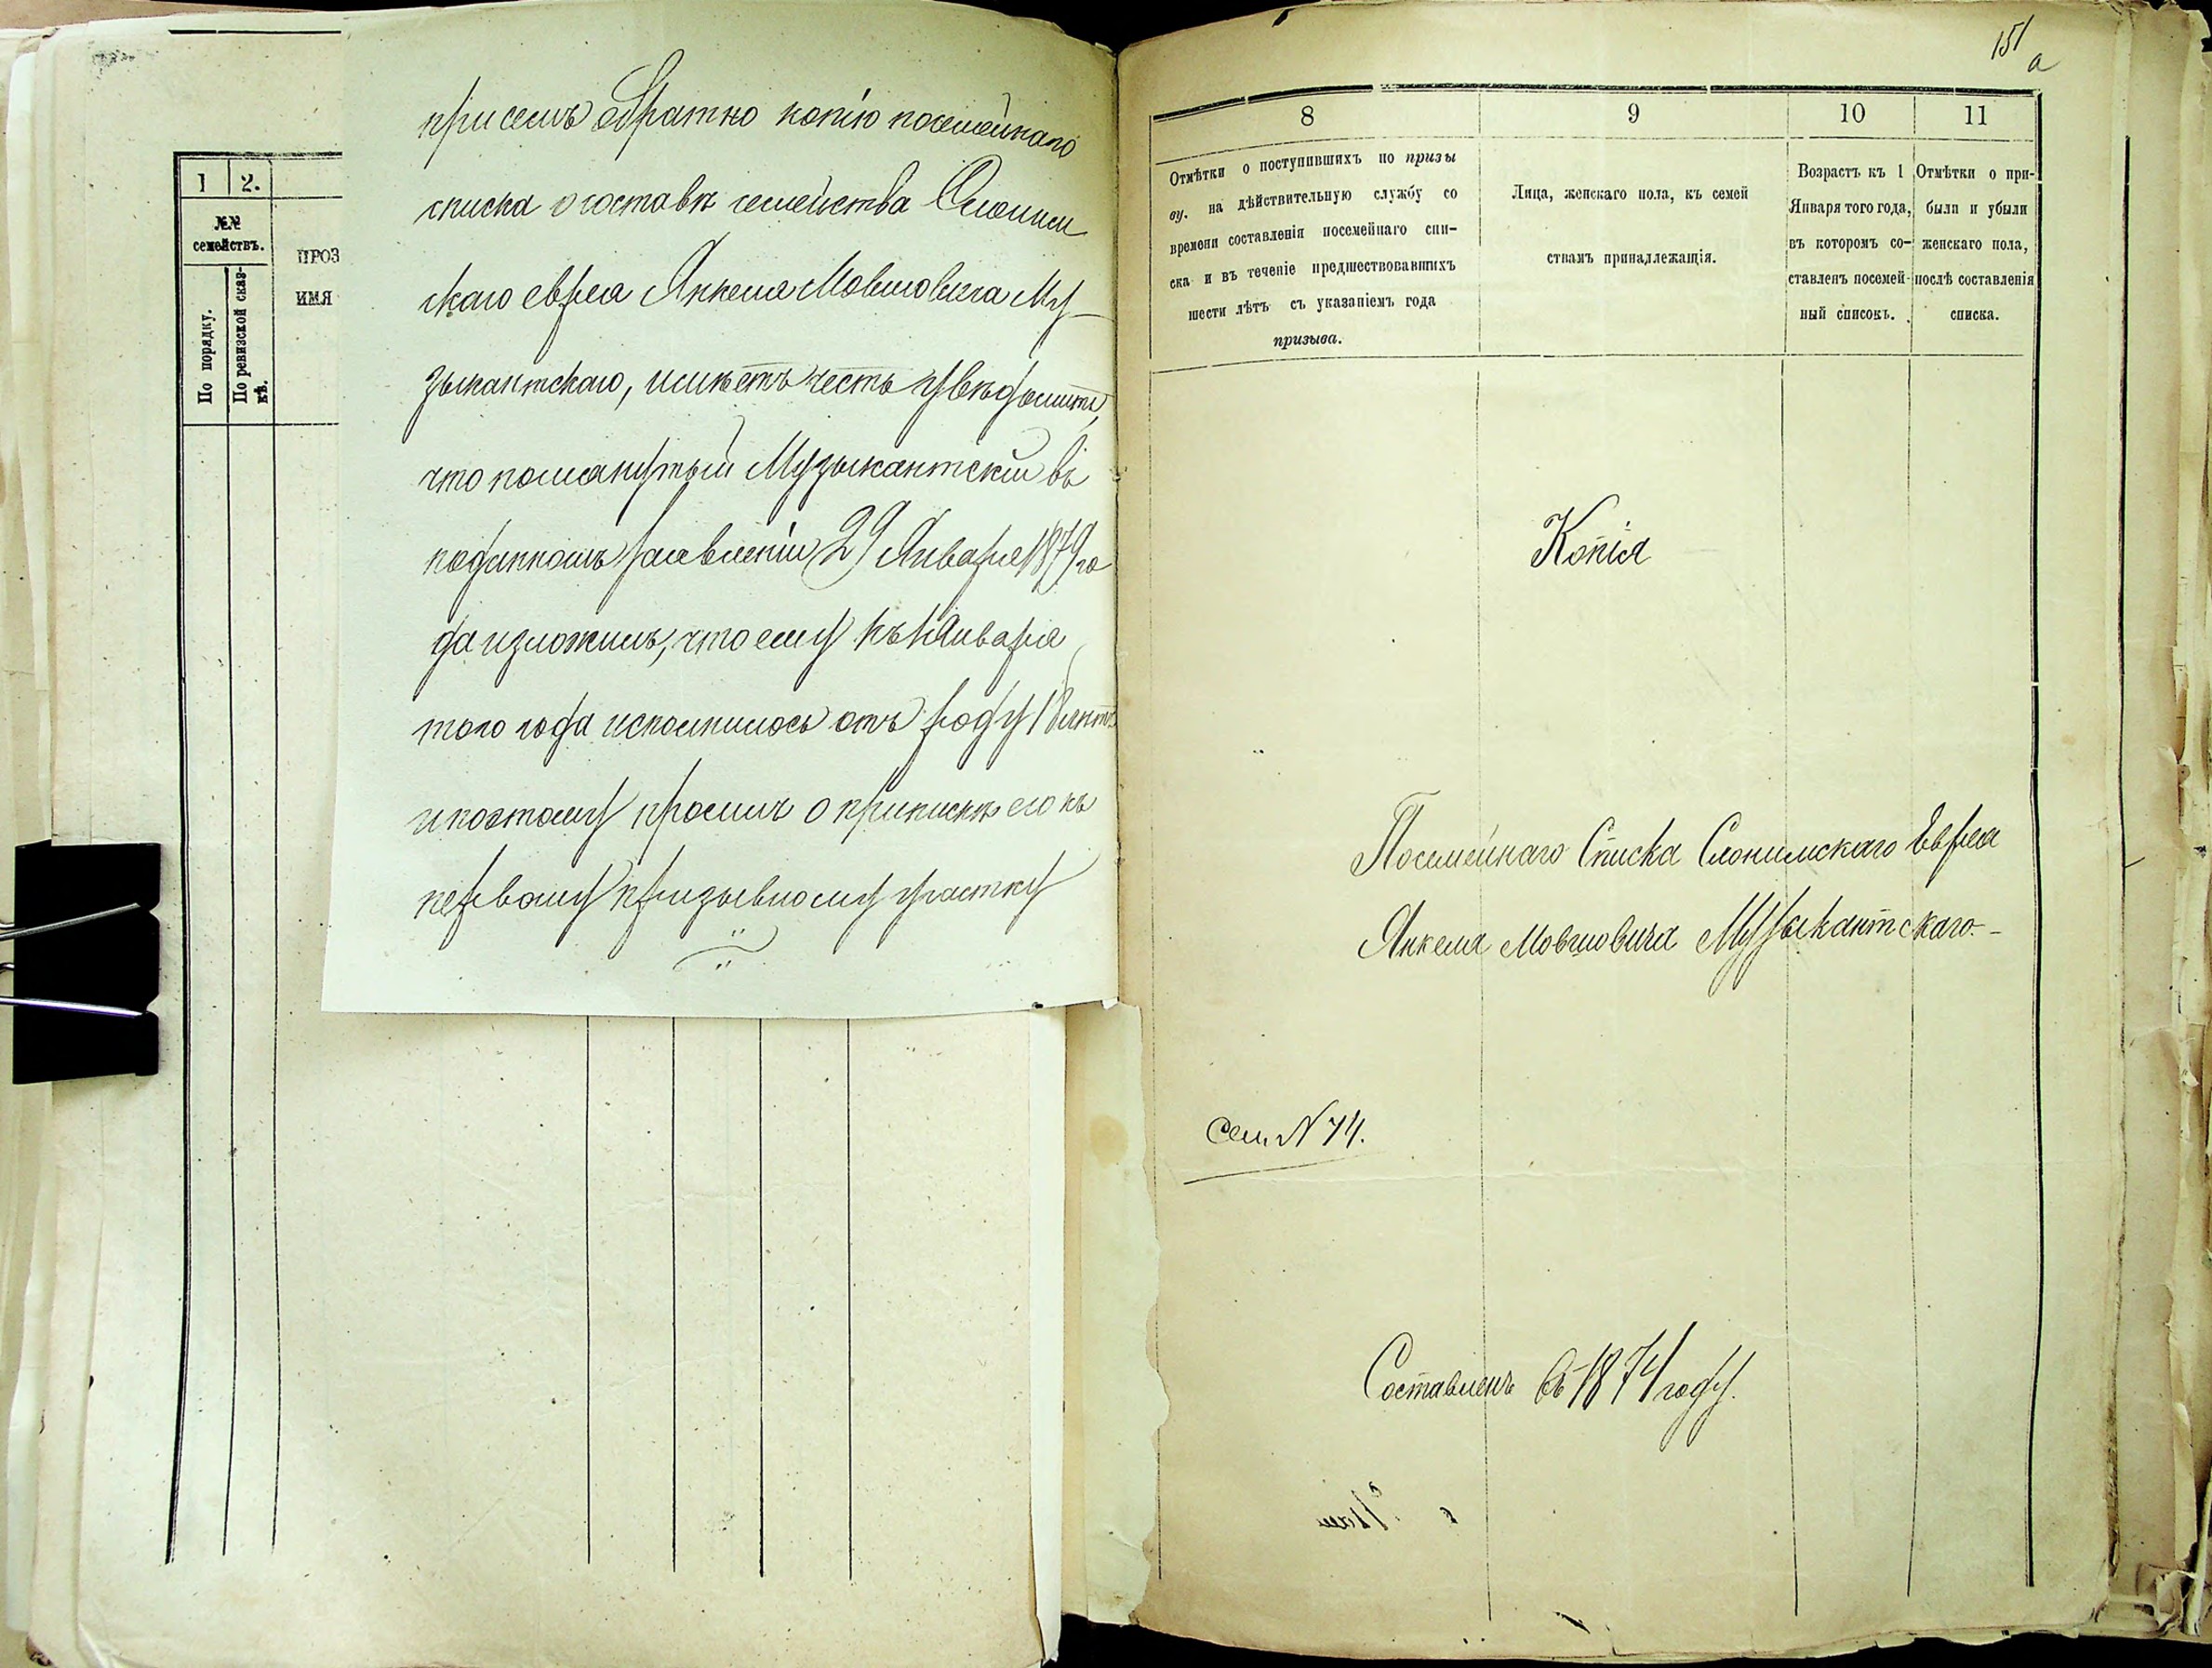 1
2.
№№
семействъ.
По порядку.
По ревизской сказ-
кѣ.
ПРОЗ
ИМЯ
при семъ обратно копію посемейнаго
списка о составѣ семейства Слоним
скаго еврея Янкеля Мовшовича Му-
зыкантскаго, имѣетъ честь увѣдомить,
что помянутый Музыкантскій въ
поданномъ заявленіи 29 Января 1879 го
да изложилъ, что ему къ 1 Января
того года исполнилось отъ роду 18 лѣтъ
и поэтому просилъ о припискѣ его къ
первому призывному участку
151
а
8
9
10
11
Отмѣтки о поступившихъ по призы
ву. на дѣйствительную службу со
времени составленія посемейнаго спи-
ска и въ теченіе предшествовавшихъ
шести лѣтъ съ указаніемъ года
призыва.
Лица, женскаго пола, къ семей
ствамъ принадлежащія.
Возрастъ къ 1
Января того года,
въ которомъ со-
ставленъ посемей-
ный списокъ.
Отмѣтки о при-
были и убыли
женскаго пола,
послѣ составленія
списка.
Копія
Посемейнаго Списка Слонимскаго Еврея
Янкеля Мовшовича Музыкантскаго.-
Сем. N 74.
Составленъ въ 1874 году.